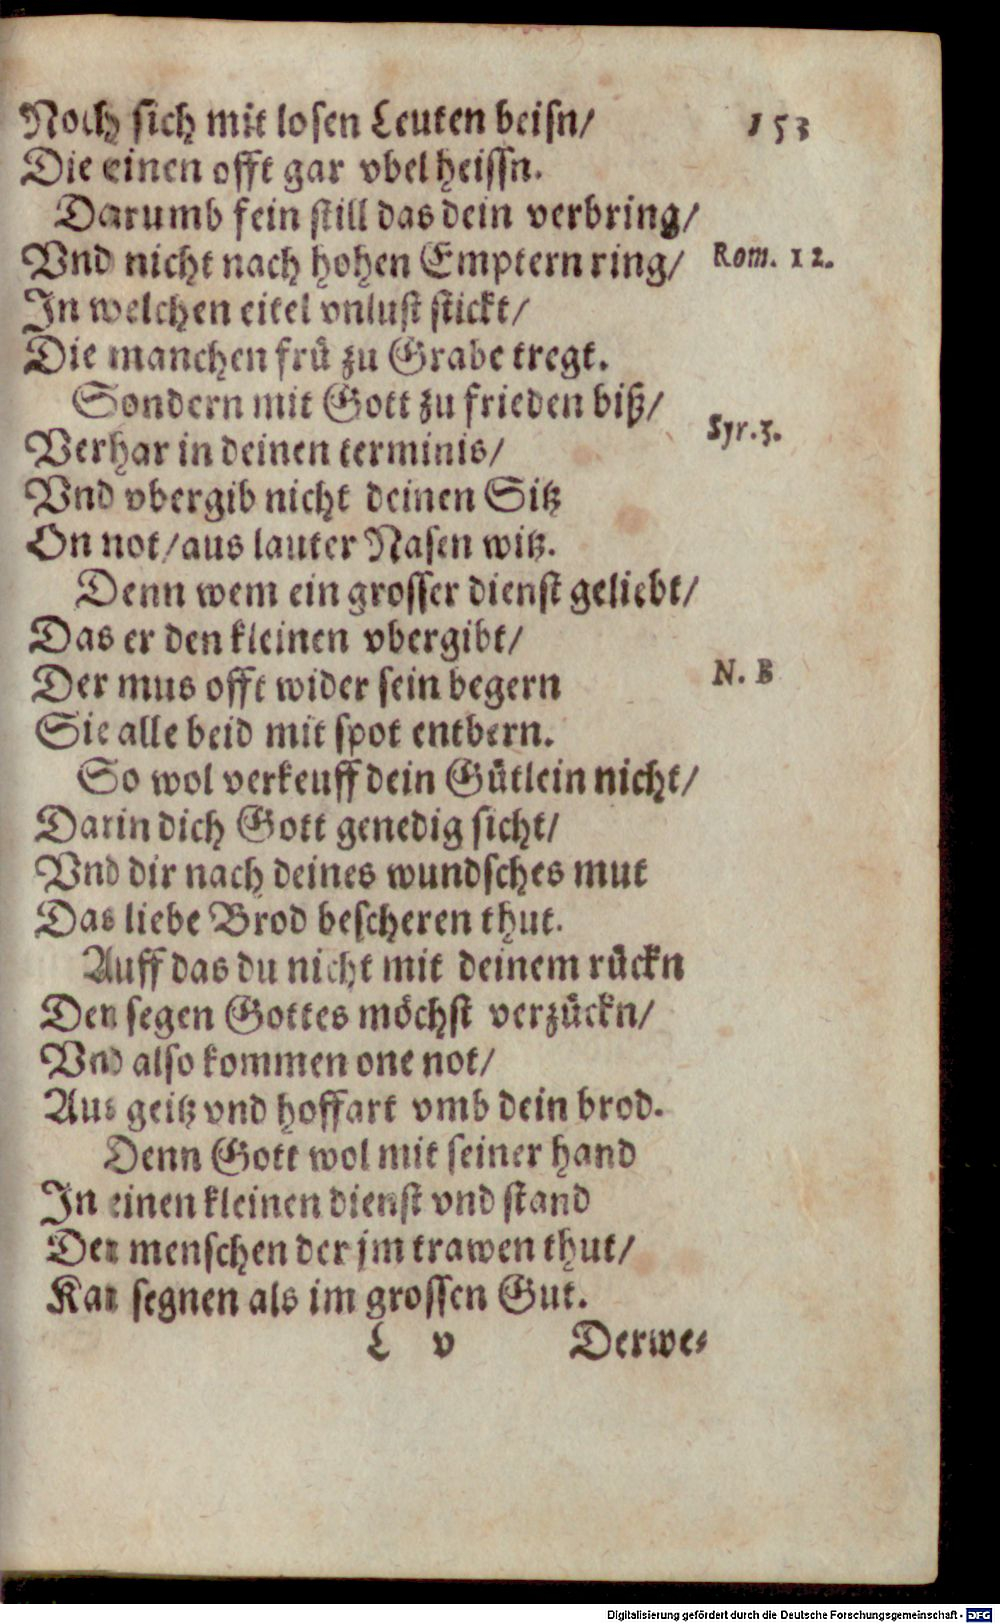 153
Noch sich mit losen Leuten beisn/
Die einen offt gar vbel heissn.
Darumb fein still das dein verbring/
Vnd nicht nach hohen Emptern ring/ Rom. 12.
In welchen eitel vnlust stickt/
Die manchen frü zu Grabe tregt.
Sondern mit Gott zu frieden biß/
Syr. 3.
Verhar in deinen terminis/
Vnd vbergib nicht deinen Sitz
On not/aus lauter Nasen witz.
Denn wem ein grosser dienst geliebt/
Das er den kleinen vbergibt/
Der mus offt wider sein begern N. B
Sie alle beid mit spot entbern.
So wol verkeuff dein Gütlein nicht/
Darin dich Gott genedig sicht/
Vnd dir nach deines wundsches mut
Das liebe Brod bescheren thut.
Auff das du nicht mit deinem rückn
Den segen Gottes möchst verzückn/
Vnd also kommen one not/
Aus geitz vnd hoffart vmb dein brod.
Denn Gott wol mit seiner hand
In einen kleinen dienst vnd stand
Den menschen der jm trawen thut/
Kan segnen als im grossen Gut.
L v Derwe-
Digitalisierung gefördert durch die Deutsche Forschungsgemeinschaft - DFG